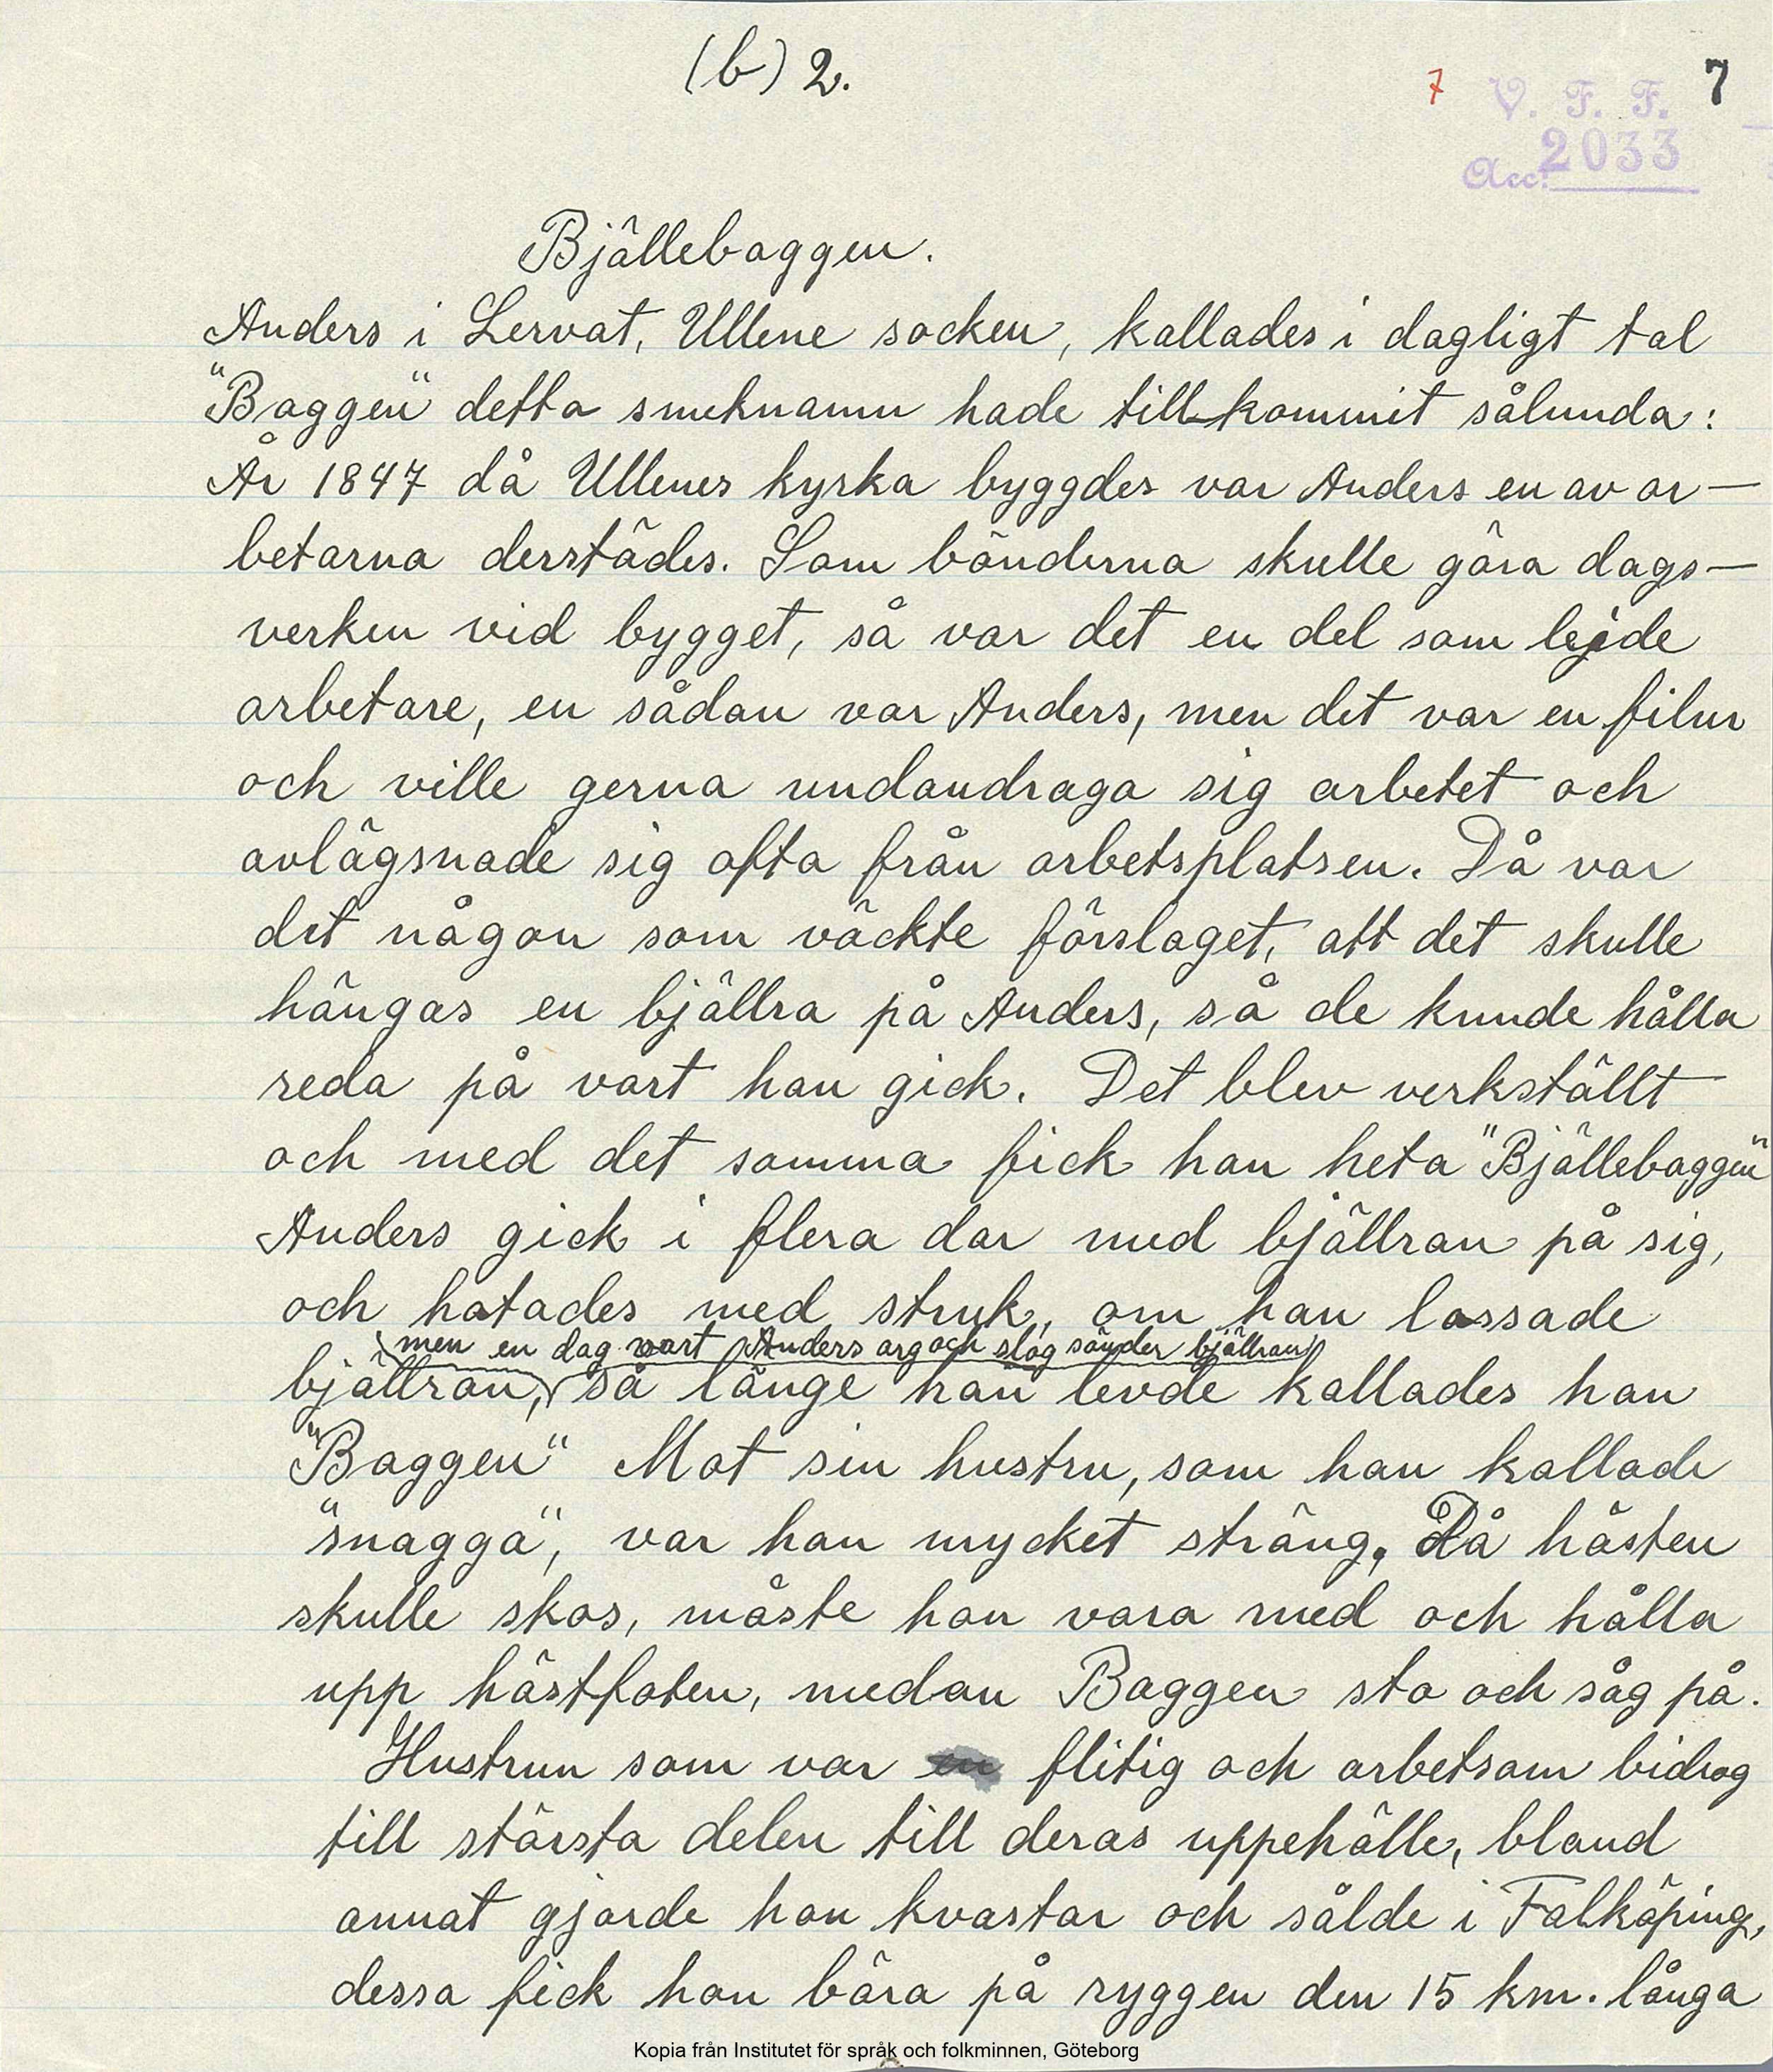 (b) 2.
7
7
V. F. F.
Acc: 2033
Bjällebaggen.
Anders i Lervat, Ullene socken, kallades i dagligt tal
"Baggen" detta smeknamn hade tillkommit sålunda:
År 1847 då Ullenes kyrka byggdes var Anders en av ar—
betarna derstädes. Som bönderna skulle göra dags—
verken vid bygget, så var det en del som lejde
arbetare, en sådan var Anders, men det var en filur
och ville gerna undandraga sig arbetet och
avlägsnade sig ofta från arbetsplatsen. Då var
det någon som väckte förslaget, att det skulle
hängas en bjällra på Anders, så de kunde hålla
reda på vart han gick. Det blev verkställt
och med det samma fick han heta "Bjällebaggen"
Anders gick i flera dar med bjällran på sig,
och hotades med stryk, om han lossade
men en dag vart Anders arg och slog sönder bjällran
bjällran, så länge han levde kallades han
"Baggen" Mot sin hustru, som han kallade
"snagga", var han mycket sträng. Då hästen
skulle skos, måste hon vara med och hålla
upp hästfoten, medan Baggen sto och såg på.
Hustrun som var en flitig och arbetsam bidrog
till största delen till deras uppehälle, bland
annat gjorde hon kvastar och sålde i Falköping,
dessa fick hon bära på ryggen den 15 km. långa
Kopia från Institutet för språk och folkminnen, Göteborg